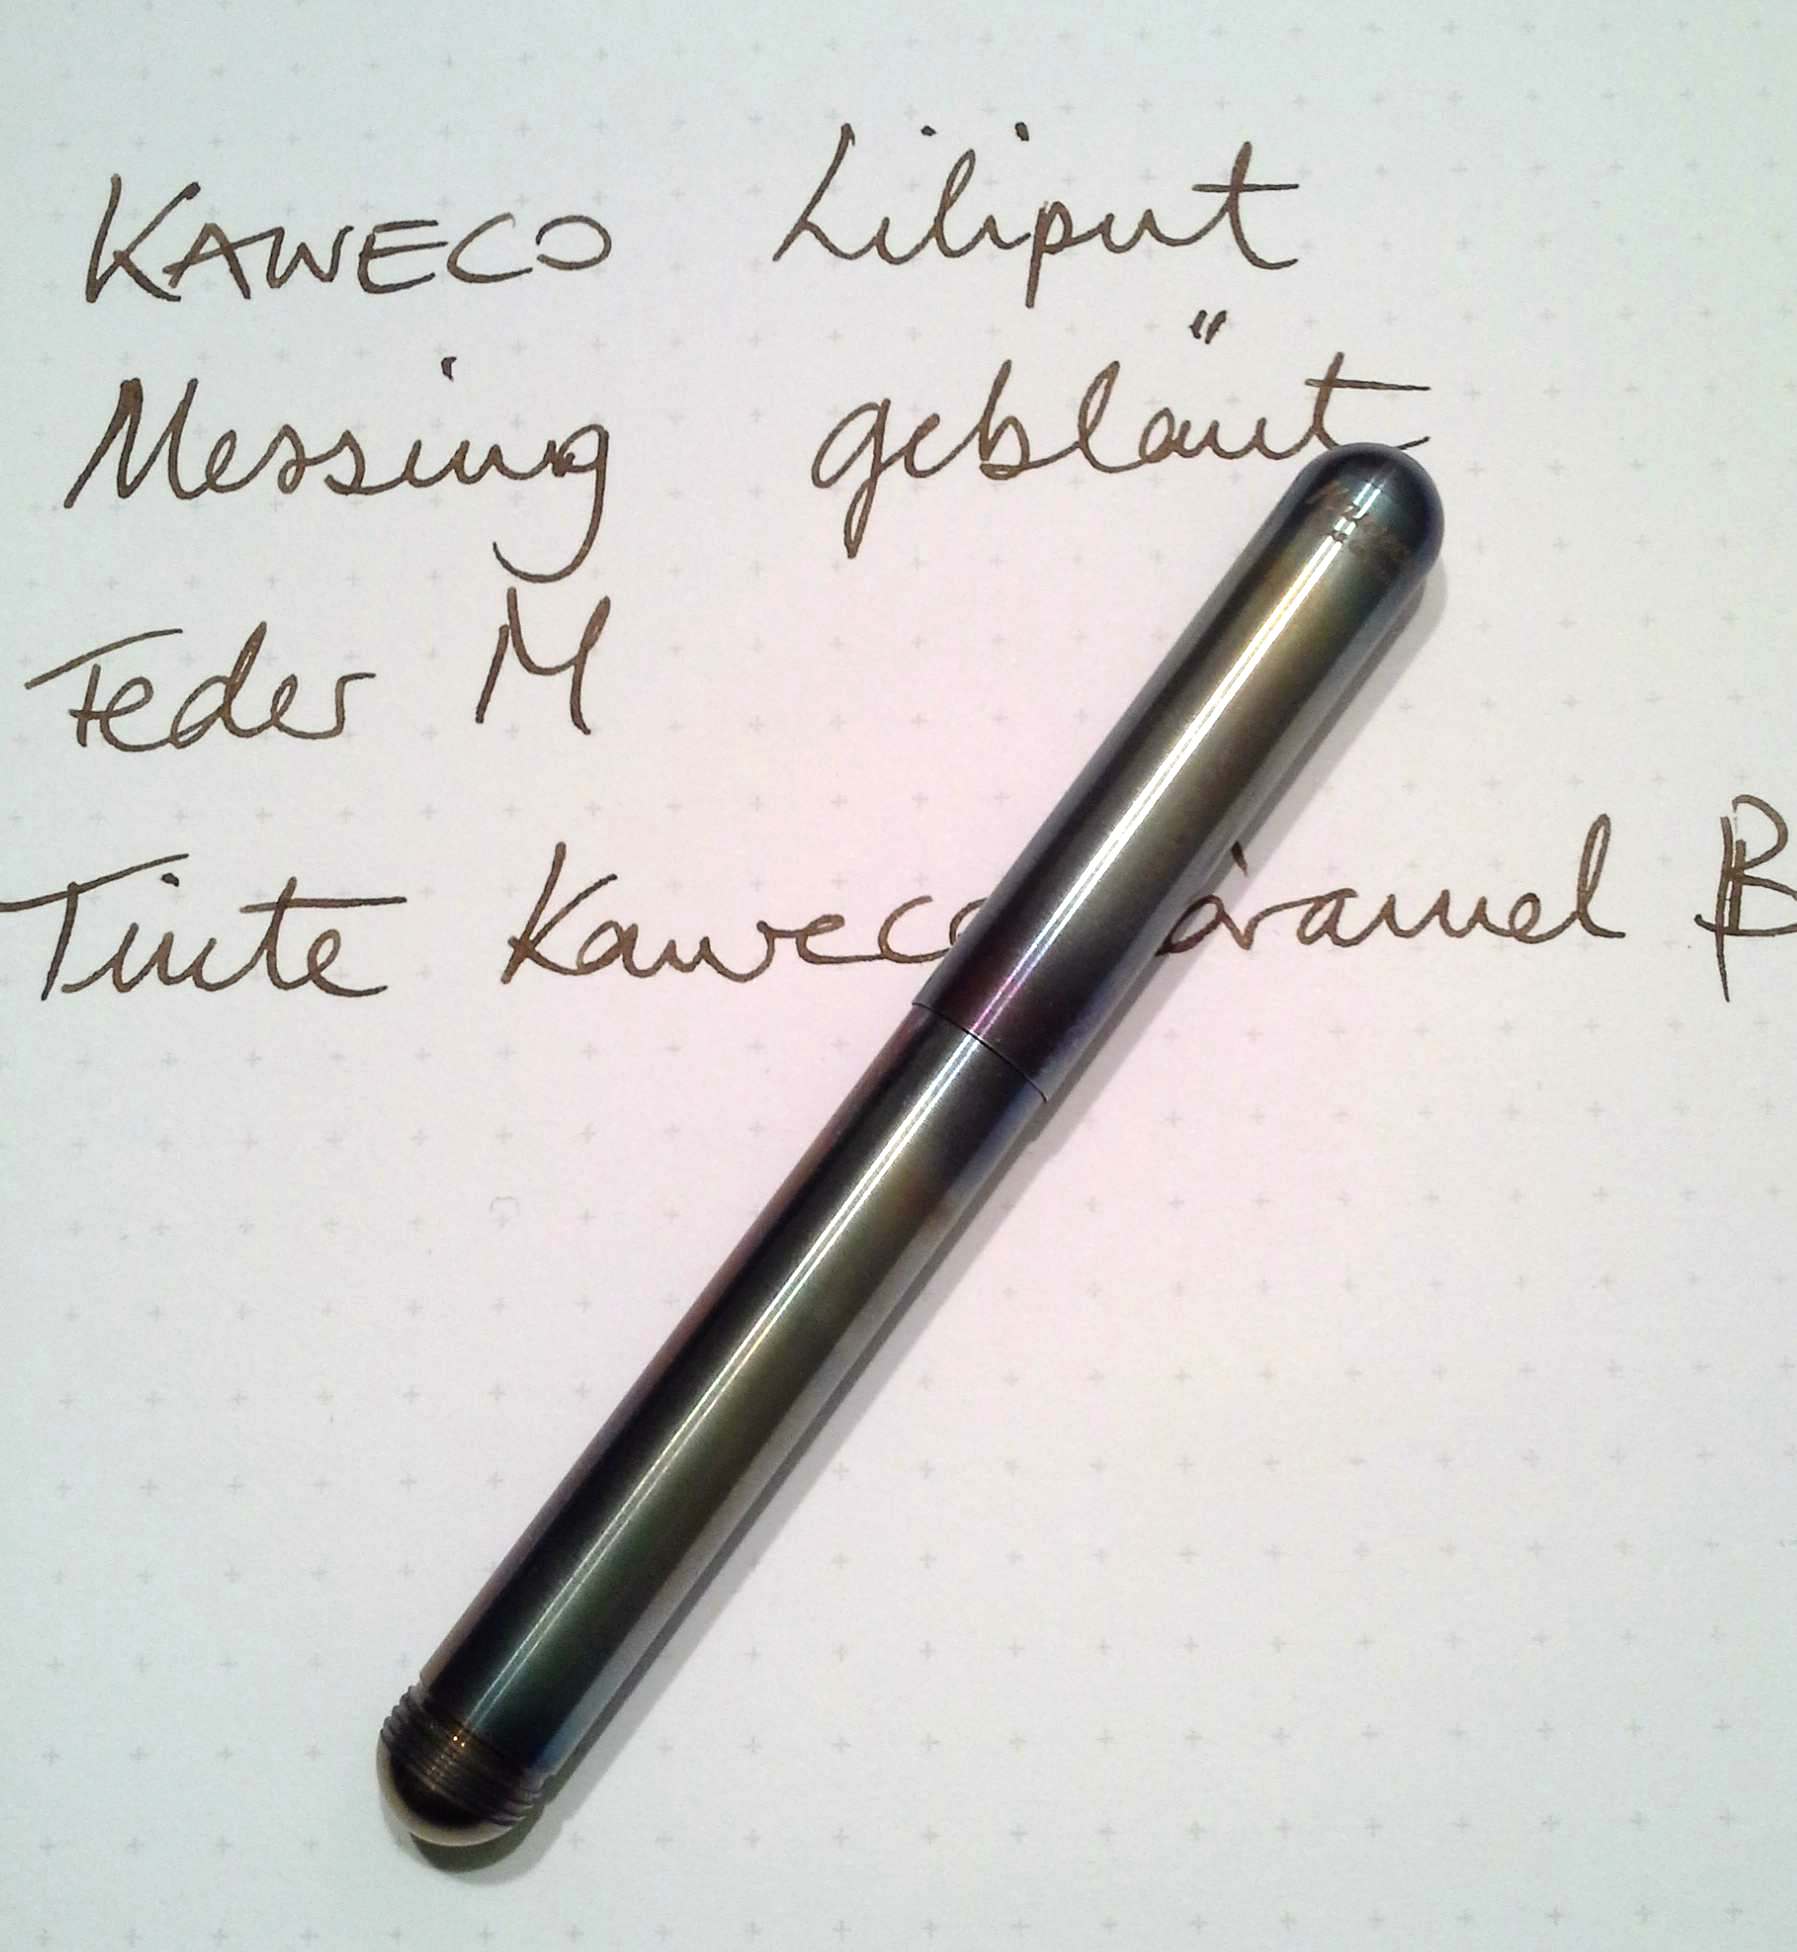 KAWECO Liliput
Messing gebläut
Feder M
Tinte Kaweco aramel B